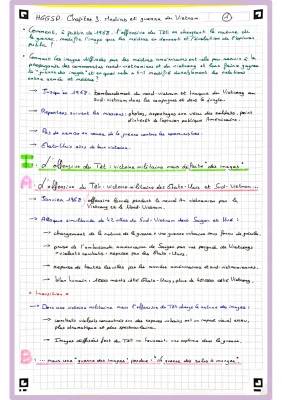 HGGSP Chapitre 3. Médias et guerre du Vietnam ①
• Comment, à partir de 1968, l'offensive du Têt en changeant la nature de
la guerre, modifie l'image que les médias en donnent et l'évolution de l'opinion
publique ?
• Comment les images diffusées par les médias américains ont-elles pu nuire à la
propagande des communistes nord-vietnamiens et du vietcong et
la "guerre des images" et en quoi cela a-t-il modifié durablement les relations
entre armée et médias ?
→ Jusqu'en 1968 : bombardement du nord-vietnam et traque du Vietcong au
sud-vietnam dans les campagnes et dans la jungle.
→ Reporters suivent les missions : photos, reportages sur vécu des soldats, point
d'intérêt de l'opinion publique Américaine.
→ Pas de remise en cause de la guerre contre les communistes.
→ États-Unis sûrs de leur victoire.
I L'offensive du Têt : victoire militaire mais défaite "des images"
A. L'offensive du Têt : victoire militaire des États-Unis et Sud-Vietnam...
→ Janvier 1968 : offensive lancée pendant le nouvel An vietnamien par le
Vietcong et le Nord-Vietnam.
→ Attaque simultanée de villes du Sud-Vietnam dont Saigon et Hué :
→ changement de la nature de la guerre = une guerre urbaine sous forme de guérilla.
→ prise de l'ambassade américaine de Saigon par une poignée de Vietcongs
= combats sanglants - reprise par les États-Unis.
→ reprise de toutes les villes par les armées américaines et sud-vietnamiennes.
→ bilan humain : morts côté États-Unis ; plus de côté Vietcong.
• Transition •
→ Donc une victoire militaire mais l'offensive du Têt change la nature des images :
→ combats violents concentrés sur des espaces urbains ont un impact visuel accru,
plus dramatique et plus spectaculaire.
→ Images diffusées font du Têt un tournant : une rupture dans la guerre.
B. ... mais une "guerre des images" perdue : "la guerre des salles à manger"